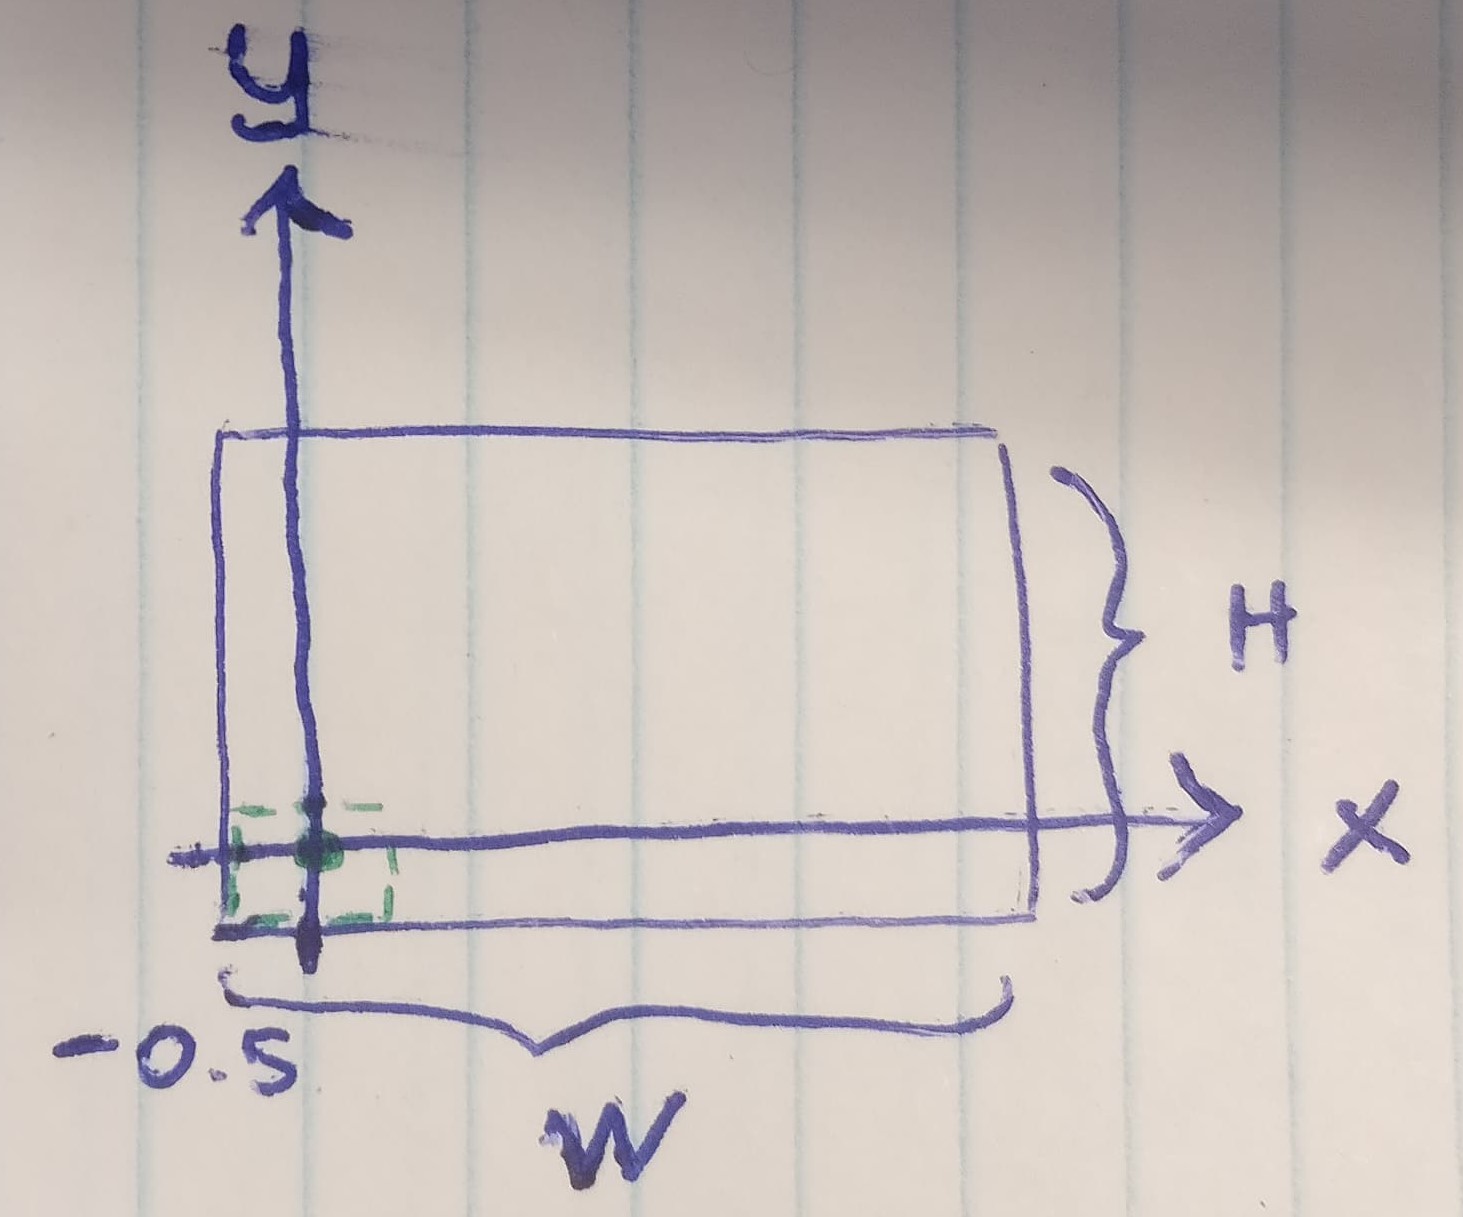 y
H
X
-0.5
W